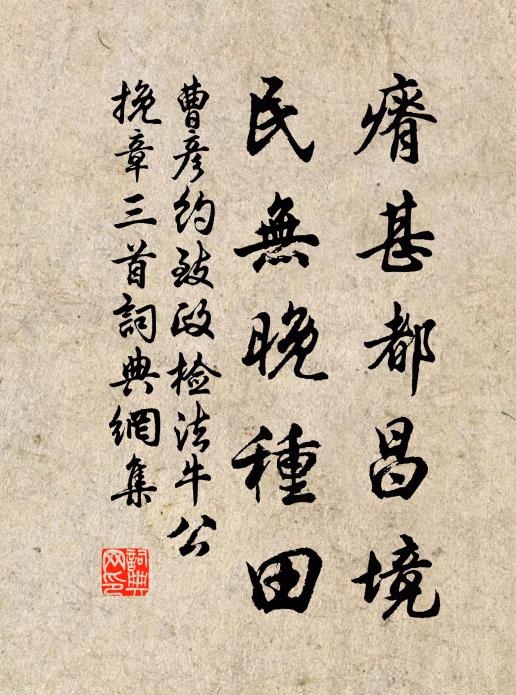 瘠甚都昌境
民無晚種田
曹彦約致政检法牛公
挽章三首詞典網集
詞典
网印